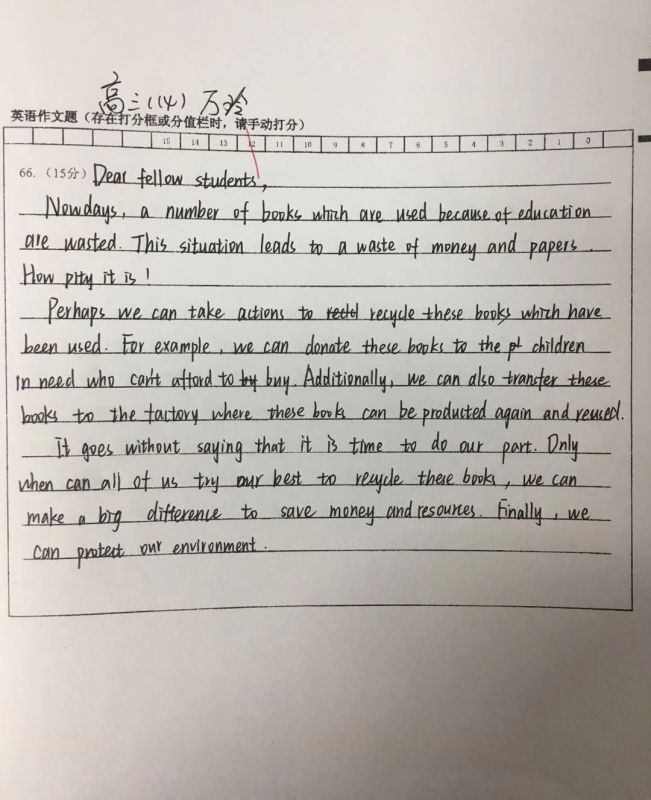 高三(14) 万玲
英语作文题(存在打分框或分值栏时,请手动打分)
15 14 13 12 11 10 9 8 7 6 5 4 3 2 1 0
66. (15分) Dear fellow students,
Nowdays, a number of books which are used because of education
are wasted. This situation leads to a waste of money and papers.
How pity it is!
Perhaps we can take actions to recycle these books which have
been used. For example, we can donate these books to the children
in need who can't afford to buy. Additionally, we can also transfer these
books to the factory where these books can be producted again and reused.
It goes without saying that it is time to do our part. Only
when can all of us try our best to recycle these books, we can
make a big difference to save money and resources. Finally, we
can protect our environment.